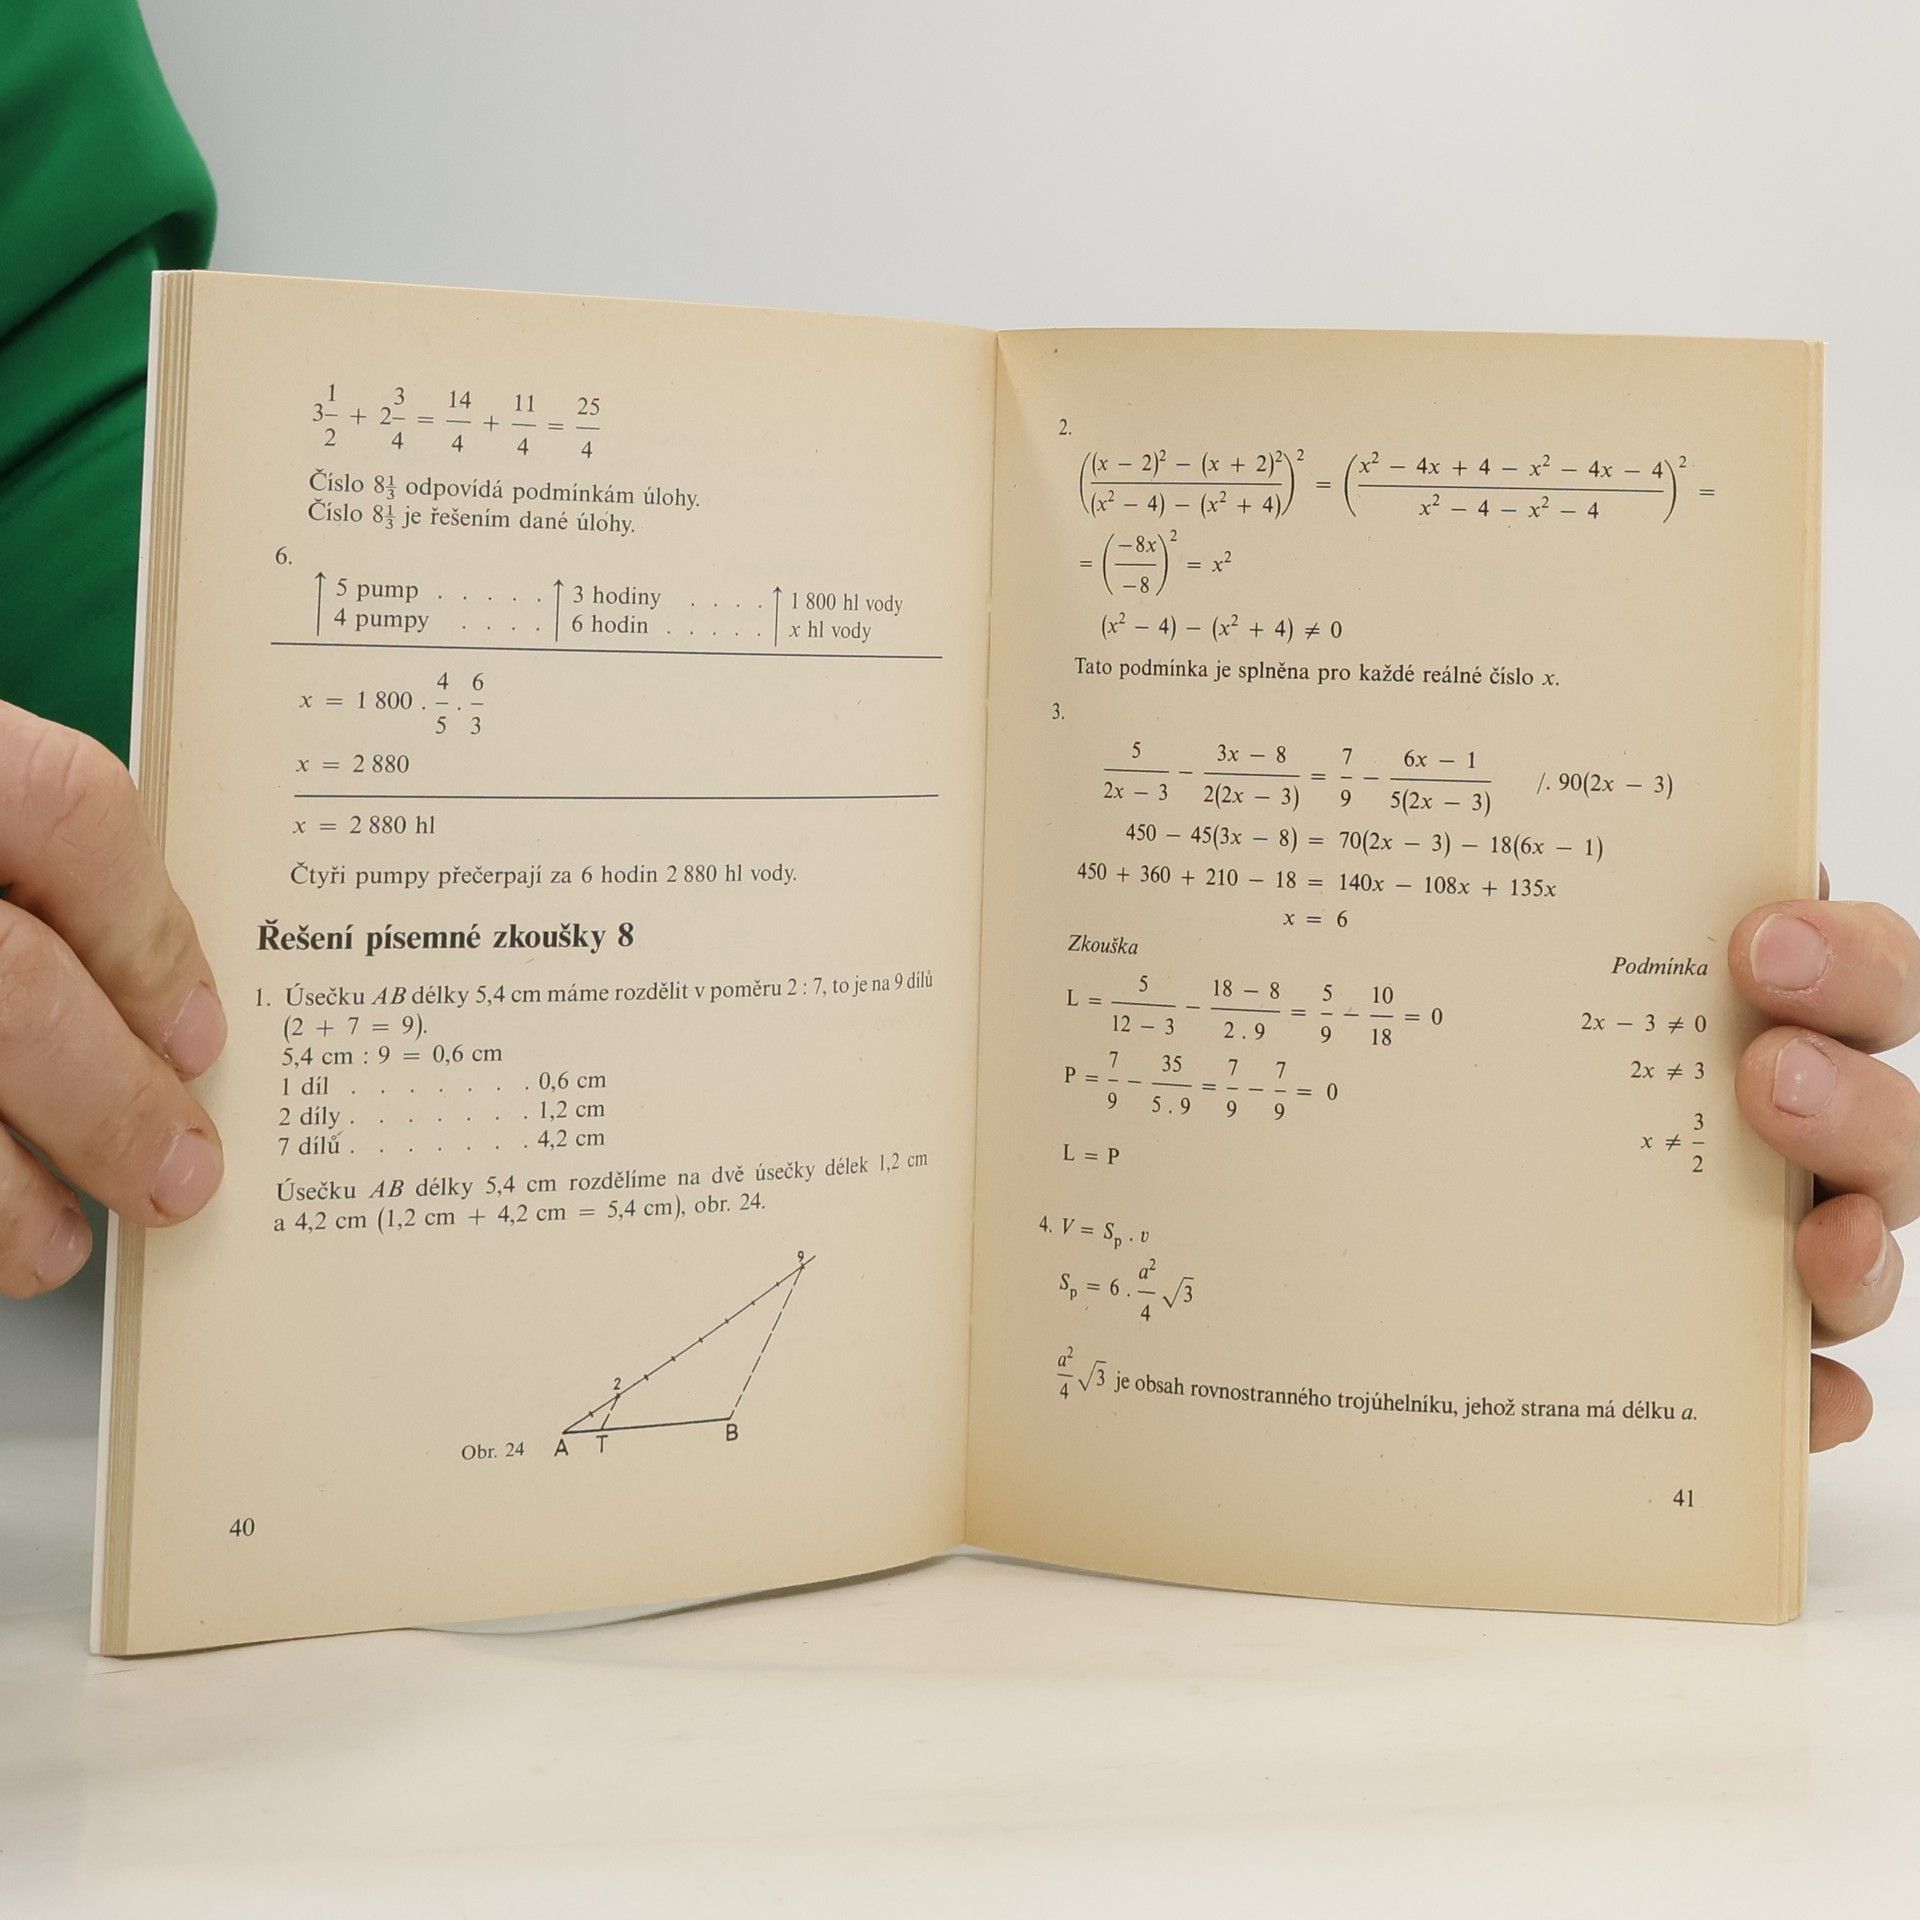 3 1/2 + 2 3/4 = 14/4 + 11/4 = 25/4
Číslo 8 1/3 odpovídá podmínkám úlohy.
Číslo 8 1/3 je řešením dané úlohy.
6.
↑ 5 pump . . . . . ↑ 3 hodiny . . . . ↑ 1 800 hl vody
4 pumpy . . . . 6 hodin . . . . . x hl vody
x = 1 800 . 4/5 . 6/3
x = 2 880
x = 2 880 hl
Čtyři pumpy přečerpají za 6 hodin 2 880 hl vody.
Řešení písemné zkoušky 8
1. Úsečku AB délky 5,4 cm máme rozdělit v poměru 2 : 7, to je na 9 dílů
(2 + 7 = 9).
5,4 cm : 9 = 0,6 cm
1 díl . . . . . . . 0,6 cm
2 díly . . . . . . . 1,2 cm
7 dílů . . . . . . . 4,2 cm
Úsečku AB délky 5,4 cm rozdělíme na dvě úsečky délek 1,2 cm
a 4,2 cm (1,2 cm + 4,2 cm = 5,4 cm), obr. 24.
9
2
Obr. 24 A T B
40
2.
((x − 2)² − (x + 2)²/(x² − 4) − (x² + 4))² = (x² − 4x + 4 − x² − 4x − 4/x² − 4 − x² − 4)² =
= (−8x/−8)² = x²
(x² − 4) − (x² + 4) ≠ 0
Tato podmínka je splněna pro každé reálné číslo x.
3.
5/2x − 3 − 3x − 8/2(2x − 3) = 7/9 − 6x − 1/5(2x − 3) /. 90(2x − 3)
450 − 45(3x − 8) = 70(2x − 3) − 18(6x − 1)
450 + 360 + 210 − 18 = 140x − 108x + 135x
x = 6
Zkouška Podmínka
L = 5/12 − 3 − 18 − 8/2 . 9 = 5/9 − 10/18 = 0 2x − 3 ≠ 0
P = 7/9 − 35/5 . 9 = 7/9 − 7/9 = 0 2x ≠ 3
L = P x ≠ 3/2
4. V = Sₚ . v
Sₚ = 6 . a²/4 √3
a²/4 √3 je obsah rovnostranného trojúhelníku, jehož strana má délku a.
41